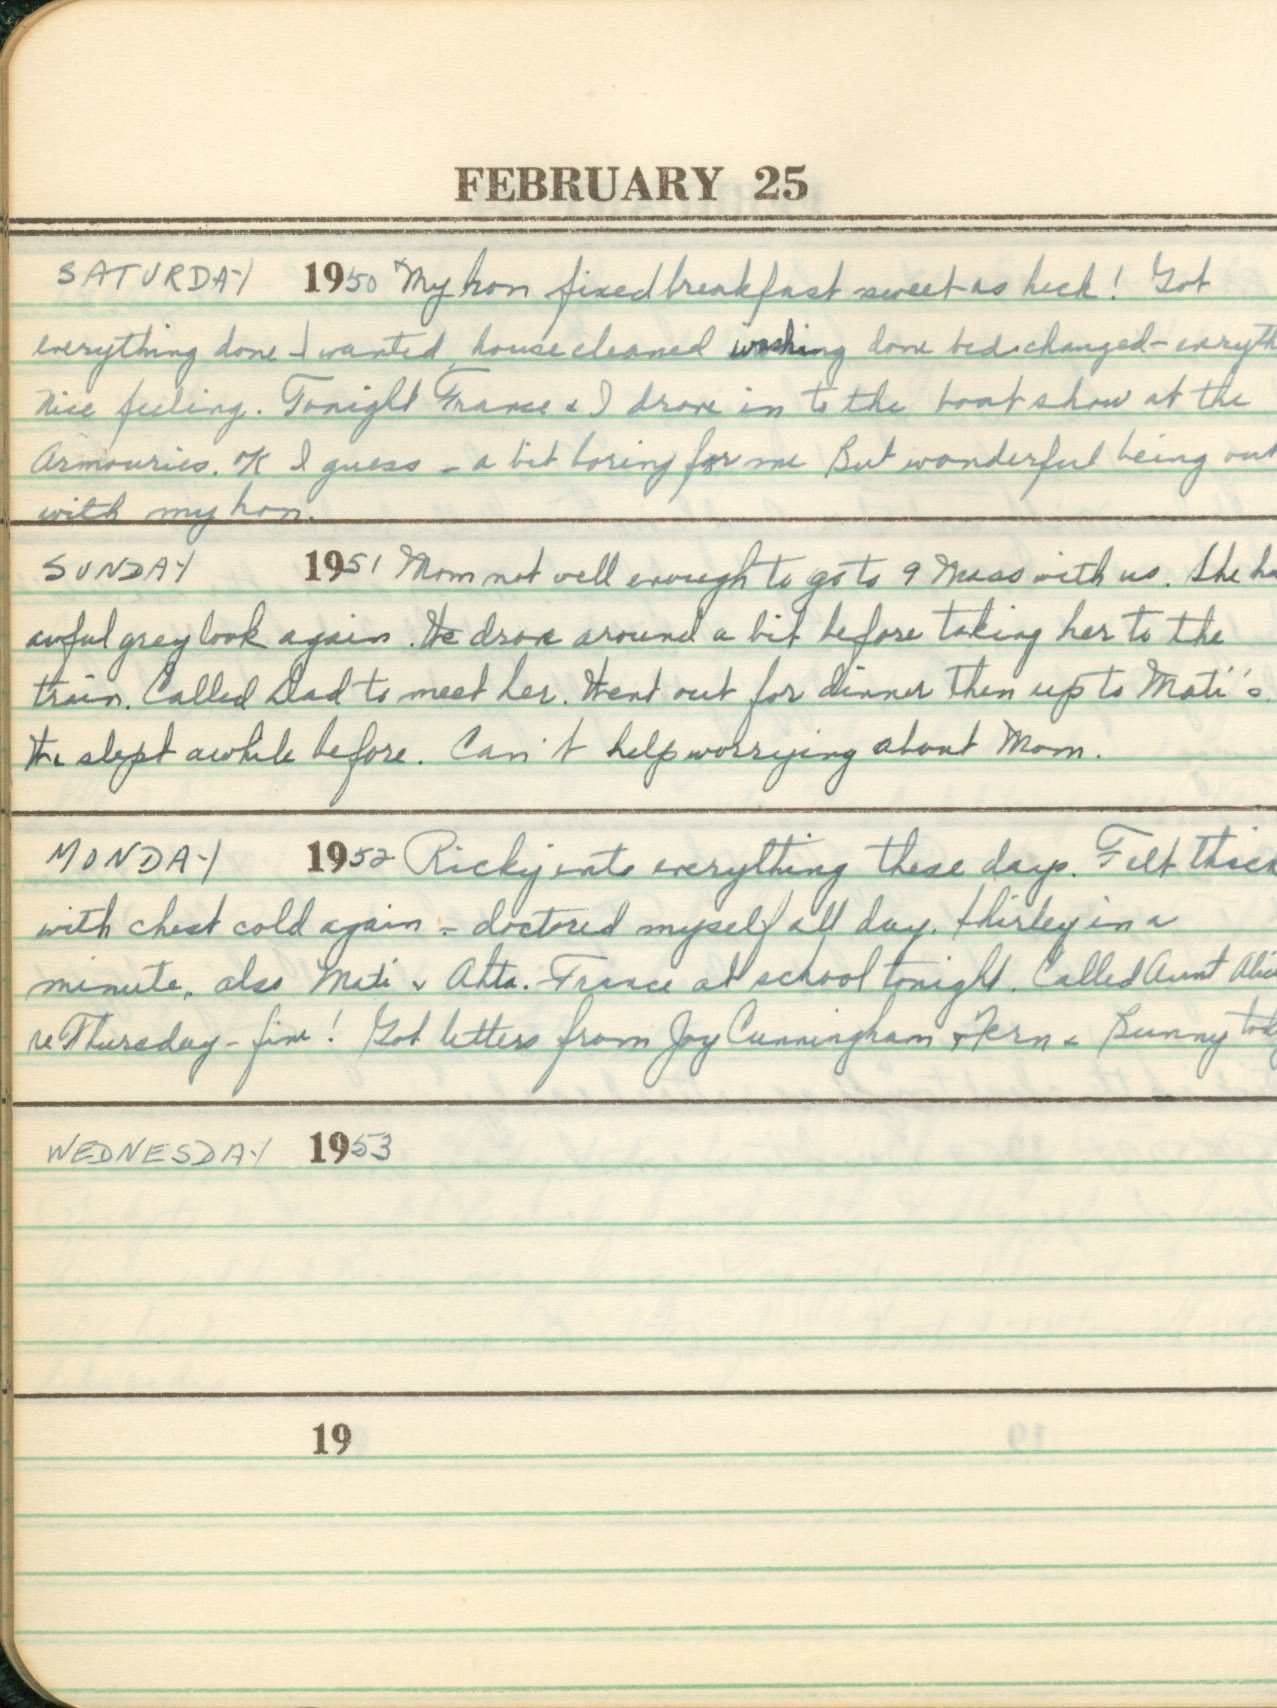 FEBRUARY 25
SATURDAY 1950 My hon fixed breakfast sweet as heck! Got
everything done I wanted, house cleaned washing done bed changed - everyth
nice feeling. Tonight France & I drove in to the boat show at the
Armouries. OK I guess - a bit boring for me But wonderful being out
with my hon.
SUNDAY 1951 Mom not well enough to go to 9 Mass with us. She ha
awful grey look again. We drove around a bit before taking her to the
train. Called Dad to meet her. Went out for dinner then up to Mati's.
We slept awhile before. Can't help worrying about Mom.
MONDAY 1952 Ricky eats everything these days. Felt thick
with chest cold again - doctored myself all day. Shirley in a
minute, also Mati & Atta. France at school tonight. Called Aunt Alice
re Thursday - fine! Got letters from Joy Cunningham & Fern & Bunny tod
WEDNESDAY 1953
19